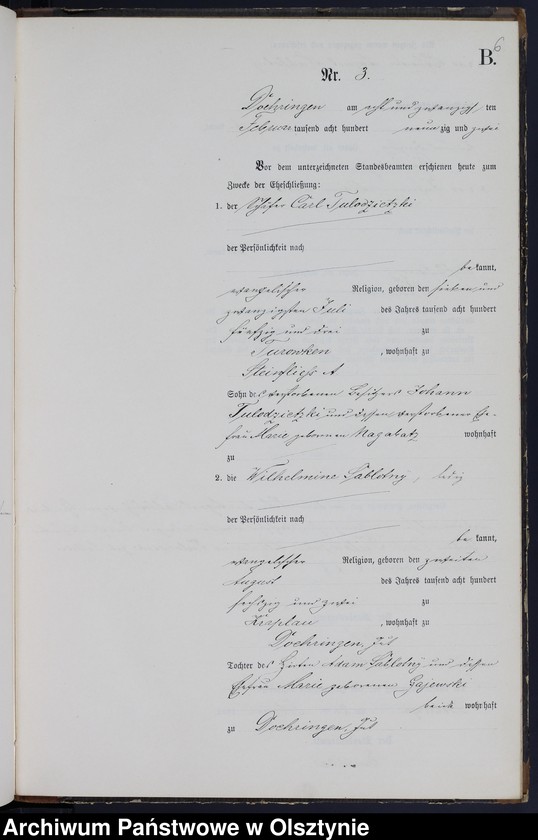 6
B.
Nr. 3.
Doehringen am acht und zwanzigsten
Februar tausend acht hundert neunzig und zwei
Vor dem unterzeichneten Standesbeamten erschienen heute zum
Zwecke der Eheschließung:
1. der Carl Tulodzietzki
der Persönlichkeit nach
be kannt,
evangelischer Religion, geboren den sieben und
zwanzigsten Juli des Jahres tausend acht hundert
fünfzig und drei zu
Turowken , wohnhaft zu
Steinfliess A
Sohn des verstorbenen Besitzers Johann
Tulodzietzki und dessen verstorbener Ehe-
frau Marie geborenen Magabatz wohnhaft
zu
2. die Wilhelmine Sablotny, ledig
der Persönlichkeit nach
be kannt,
evangelischer Religion, geboren den zweiten
August des Jahres tausend acht hundert
sechszig und zwei zu
, wohnhaft zu
Doehringen, Gut
Tochter des Hirten Adam Sablotny und dessen
Ehefrau Marie geborenen Gajewski
beide wohnhaft
zu Doehringen, Gut
Archiwum Państwowe w Olsztynie